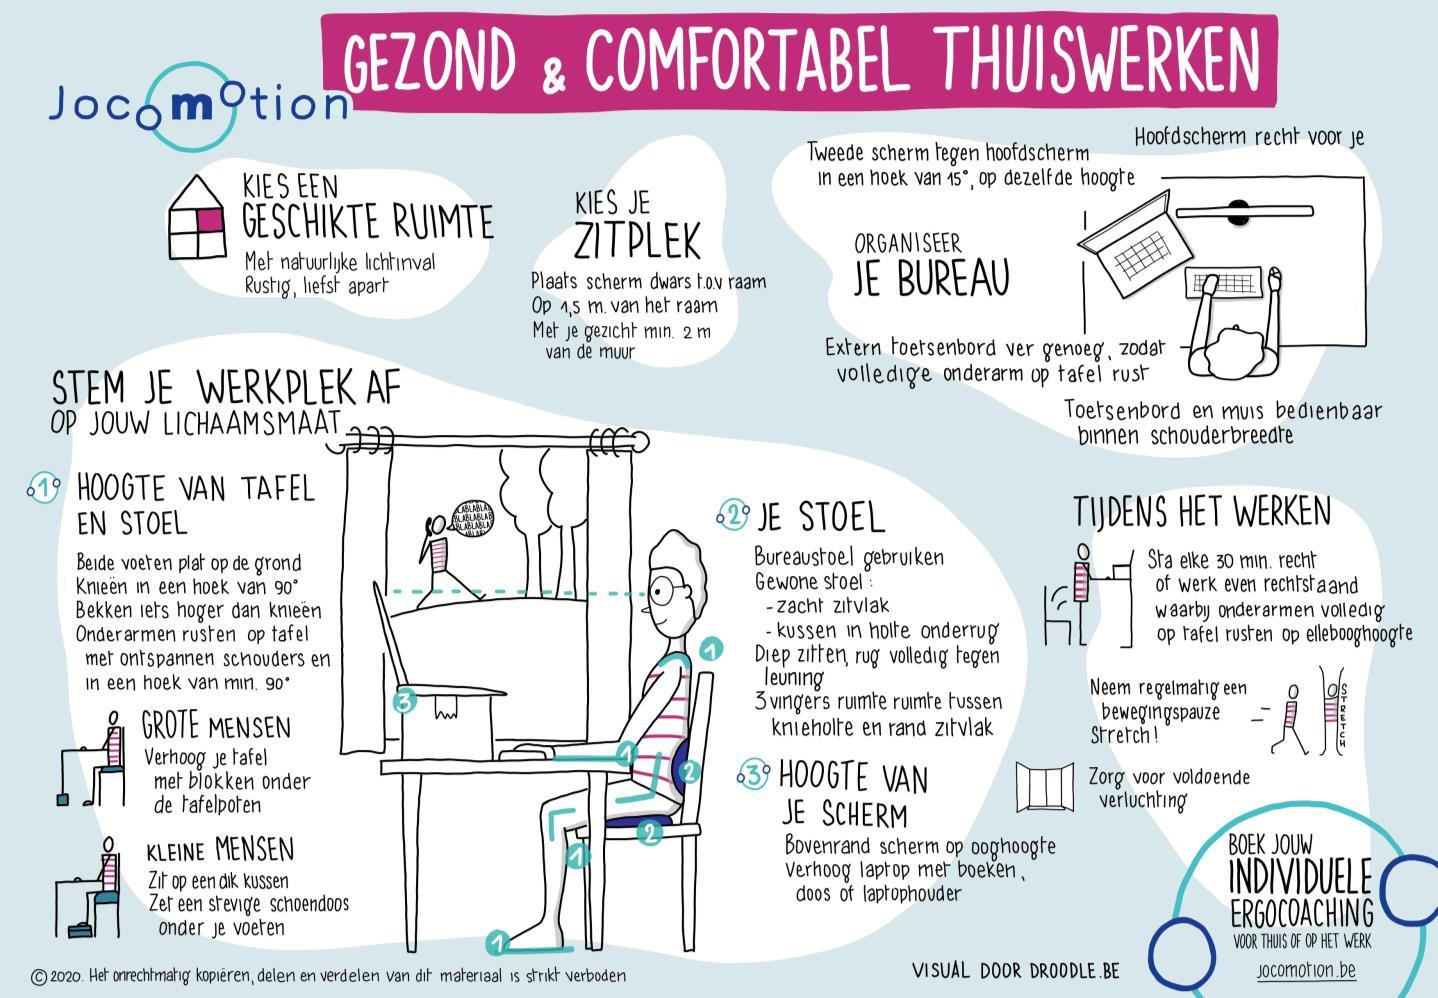 Jocomotion
GEZOND & COMFORTABEL THUISWERKEN
KIES EEN
GESCHIKTE RUIMTE
Met natuurlijke lichtinval
Rustig, liefst apart
KIES JE
ZITPLEK
Plaats scherm dwars t.o.v raam
Op 1,5 m. van het raam
Met je gezicht min. 2 m
van de muur
Hoofdscherm recht voor je
Tweede scherm tegen hoofdscherm
in een hoek van 15°, op dezelfde hoogte
ORGANISEER
JE BUREAU
Extern toetsenbord ver genoeg, zodat
volledige onderarm op tafel rust
Toetsenbord en muis bedienbaar
binnen schouderbreedte
STEM JE WERKPLEK AF
OP JOUW LICHAAMSMAAT
1 HOOGTE VAN TAFEL
EN STOEL
Beide voeten plat op de grond
Knieën in een hoek van 90°
Bekken iets hoger dan knieën
Onderarmen rusten op tafel
met ontspannen schouders en
in een hoek van min. 90°
GROTE MENSEN
Verhoog je tafel
met blokken onder
de tafelpoten
KLEINE MENSEN
Zit op een dik kussen
Zet een stevige schoendoos
onder je voeten
1
3
1
2
2
1
1
2 JE STOEL
Bureaustoel gebruiken
Gewone stoel :
- zacht zitvlak
- kussen in holte onderrug
Diep zitten, rug volledig tegen
leuning
3 vingers ruimte ruimte tussen
knieholte en rand zitvlak
3 HOOGTE VAN
JE SCHERM
Bovenrand scherm op ooghoogte
Verhoog laptop met boeken,
doos of laptophouder
TIJDENS HET WERKEN
Sta elke 30 min. recht
of werk even rechtstaand
waarbij onderarmen volledig
op tafel rusten op ellebooghoogte
Neem regelmatig een
bewegingspauze
Stretch!
STRETCH
Zorg voor voldoende
verluchting
BOEK JOUW
INDIVIDUELE
ERGOCOACHING
VOOR THUIS OF OP HET WERK
jocomotion.be
© 2020. Het onrechtmatig kopiëren, delen en verdelen van dit materiaal is strikt verboden
VISUAL DOOR DROODLE.BE